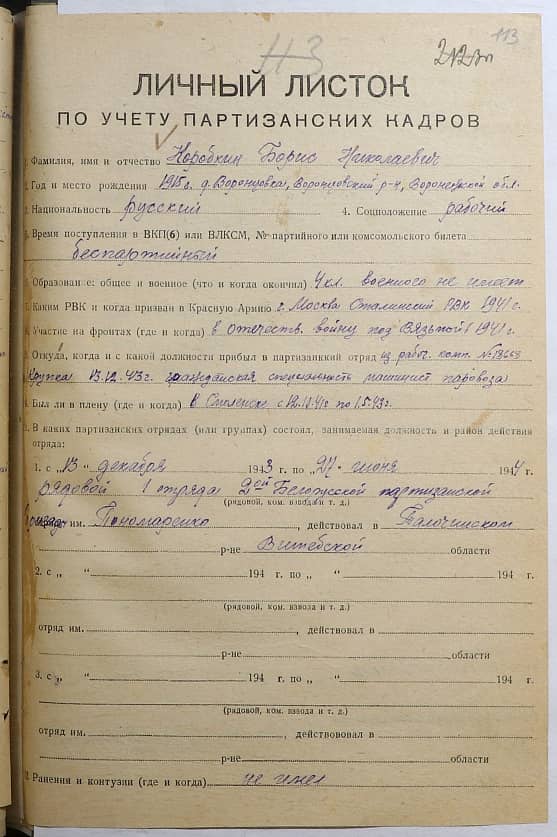 113
ЛИЧНЫЙ ЛИСТОК
ПО УЧЕТУ ПАРТИЗАНСКИХ КАДРОВ
Фамилия, имя и отчество Коробкин Борис Николаевич
Год и место рождения 1915 г. д. Воронцовка, Воронцовский р-н, Воронежской обл.
Национальность русский 4. Соцположение рабочий
Время поступления в ВКП(б) или ВЛКСМ, № партийного или комсомольского билета
беспартийный
Образование: общее и военное (что и когда окончил) 4 кл. военного не имеет
Каким РВК и когда призван в Красную Армию г. Москва Сталинский РВК 1941 г.
Участие на фронтах (где и когда) в отечеств. войну под Вязьмой 1941 г.
Откуда, когда и с какой должности прибыл в партизанский отряд из рабоч. комп. №
Крупка 13.12.43г. гражданская специальность машинист паровоза
Был ли в плену (где и когда) в Смоленске с по 1.5.43г.
В каких партизанских отрядах (или группах) состоял, занимаемая должность и район действия
отряда:
1. с „13“ декабря 1943 г. по „27“ июня 1944 г.
рядовой 1 отряда 2ой Белорусской партизанской
(рядовой, ком. взвода и т. д.)
бригады им. Пономаренко, действовал в Толочинском
р-не Витебской области
2. с „ “ 194 г. по „ “ 194 г.
(рядовой, ком. взвода и т. д.)
отряд им. , действовал в
р-не области
3. с „ “ 194 г. по „ “ 194 г.
(рядовой, ком. взвода и т. д.)
отряд им. , действовал в
р-не области
Ранения и контузии (где и когда) не имел